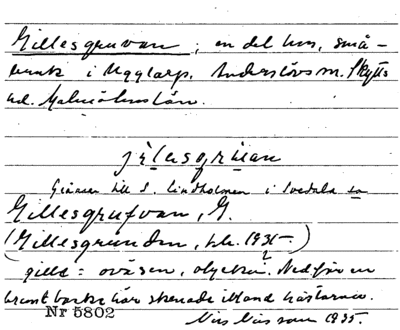 Gillesgruvan, en del hus, små-
bruk i Ugglarp. Anderslövs sn. Skytts
hd. Malmöhus län.
jìlesgrúan
Gränsar till S. Lindholmen i Svedala sn
Gillesgrufvan, G.
(Gillesgrunden, hlr. 1935.)
gille: oväsen, olycka? Nedför en
brant backe har skenade ibland hästarna.
Nr 5802
Nils Nilsson 1935.